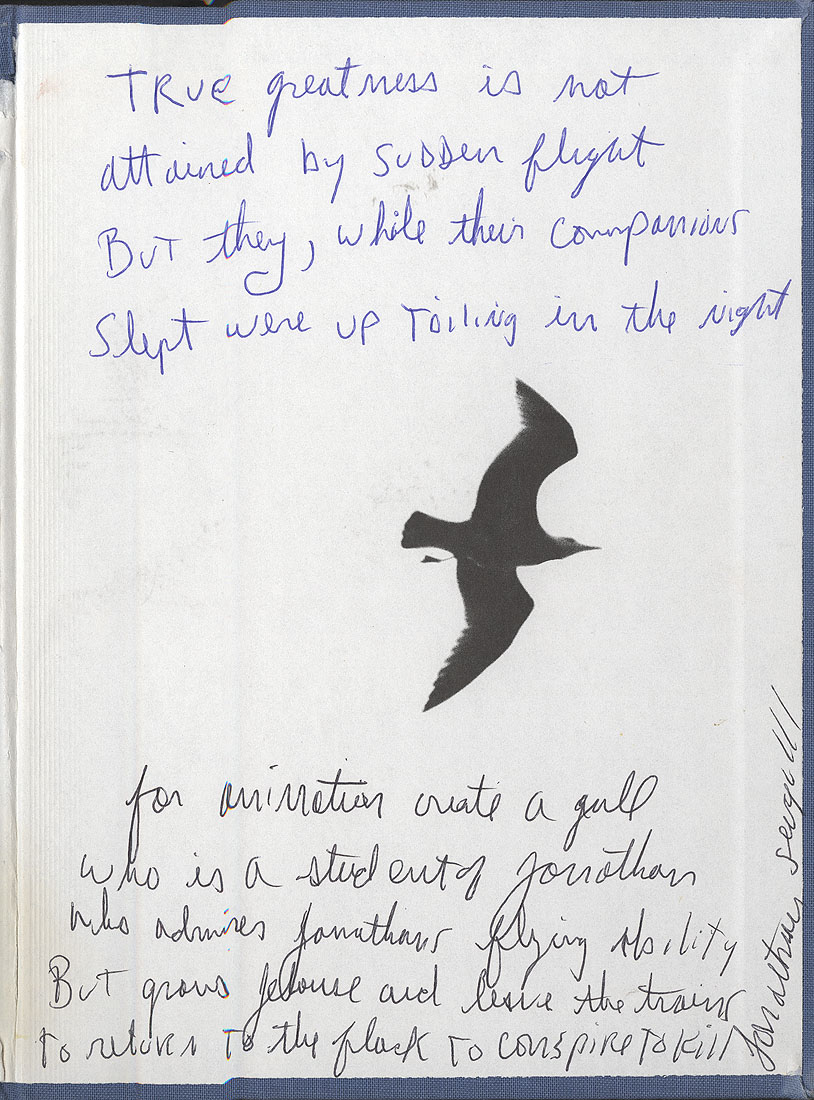 TRUE greatness is not
attained by SUDDEN flight
BUT they, while their companions
Slept were up Toiling in the night
for animation create a gull
who is a student of Jonathan
who admires Jonathans flying ability
BUT grows jelouse and leave the trains
To return To the flock To conspire To Kill
Jonathan seagull